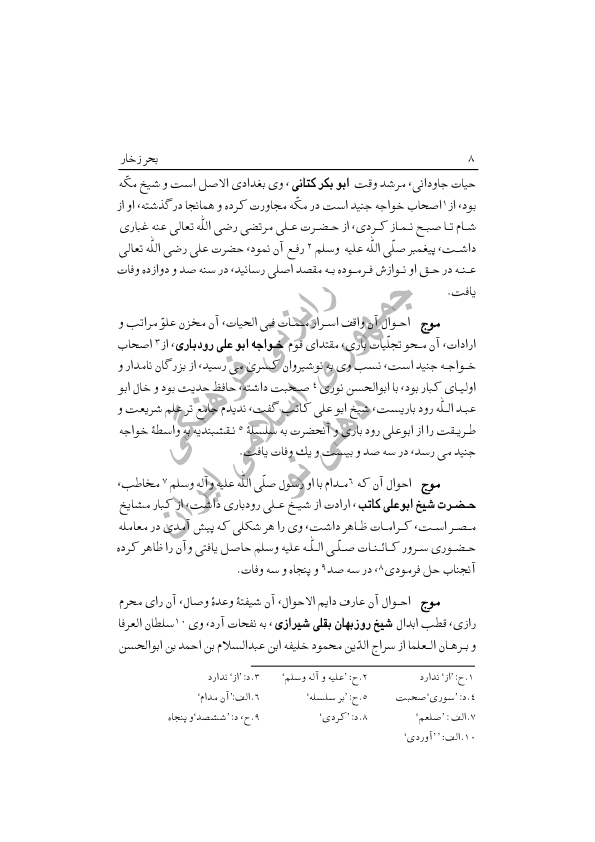 ۸ بحر زخار
حیات جاودانی، مرشد وقت ابو بکر کتانی، وی بغدادی الاصل است و شیخ مکّه
بود، از۱ اصحاب خواجه جنید است در مکّه مجاورت کرده و همانجا در گذشته، او از
شام تا صبح نماز کردی، از حضرت علی مرتضی رضی اللّٰه تعالی عنه غباری
داشت، پیغمبر صلّی اللّٰه علیه وسلم ۲ رفع آن نمود، حضرت علی رضی اللّٰه تعالی
عنه در حق او نوازش فرموده به مقصد اصلی رسانید، در سنه صد و دوازده وفات
یافت.
موج احوال آن واقف اسرار ممات فی الحیات، آن مخزن علوّ مراتب و
ارادات، آن محو تجلّیات باری، مقتدای قوم خواجه ابو علی رودباری، از۳ اصحاب
خواجه جنید است، نسب وی به نوشیروان کسریٰ می رسید، از بزرگان نامدار و
اولیای کبار بود، با ابوالحسن نوری ۴ صحبت داشته، حافظ حدیث بود و خال ابو
عبد اللّٰه رود باریست، شیخ ابو علی کاتب گفت، ندیدم جامع تر علم شریعت و
طریقت را از ابوعلی رود باری و آنحضرت به سلسلهٔ ۵ نقشبندیه به واسطهٔ خواجه
جنید می رسد، در سه صد و بیست و یك وفات یافت.
موج احوال آن که ۶مدام با او رسول صلّی اللّٰه علیه وآله وسلم ۷ مخاطب،
حضرت شیخ ابوعلی کاتب، ارادت از شیخ علی رودباری داشت، از کبار مشایخ
مصر است، کرامات ظاهر داشت، وی را هر شکلی که پیش آمدی در معامله
حضوری سرور کائنات صلّی اللّٰه علیه وسلم حاصل یافتی وآن را ظاهر کرده
آنجناب حل فرمودی۸، در سه صد۹ و پنجاه و سه وفات.
موج احوال آن عارف دایم الاحوال، آن شیفتهٔ وعدهٔ وصال، آن رای محرم
رازی، قطب ابدال شیخ روزبهان بقلی شیرازی، به نفحات آرد، وی ۱۰سلطان العرفا
و برهان العلما از سراج الدّین محمود خلیفه ابن عبدالسلام بن احمد بن ابوالحسن
۱.ح: ’از‘ ندارد ۲.ح: ’علیه و آله وسلم‘ ۳.د: ’از‘ ندارد
۴.د: ’سوری‘ صحبت ۵.ح: ’بر سلسله‘ ۶.الف:’آن مدام‘
۷.الف : ’صلعم‘ ۸.د: ’کردی‘ ۹.ح، د: ’ششصد‘و پنجاه
۱۰.الف: ’’آوردی‘
جمهوری اسلامی ایران
رایزنی فرهنگی
دهلی نو